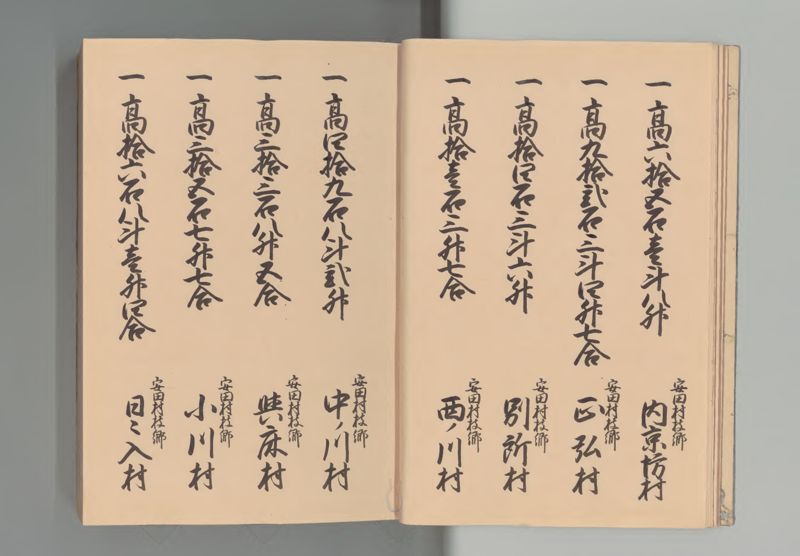 一高六拾五石壱斗八升
安田村枝郷
内京坊村
一高九拾弐石三斗四升七合
安田村枝郷
正弘村
一高拾四石三斗六升
安田村枝郷
別所村
一高拾壱石三升七合
安田村枝郷
西ノ川村
一高四拾九石八斗弐升
安田村枝郷
中ノ川村
一高三拾三石八升五合
安田村枝郷
與床村
一高三拾五石七升七合
安田村枝郷
小川村
一高拾六石八斗壱升四合
安田村枝郷
日々入村